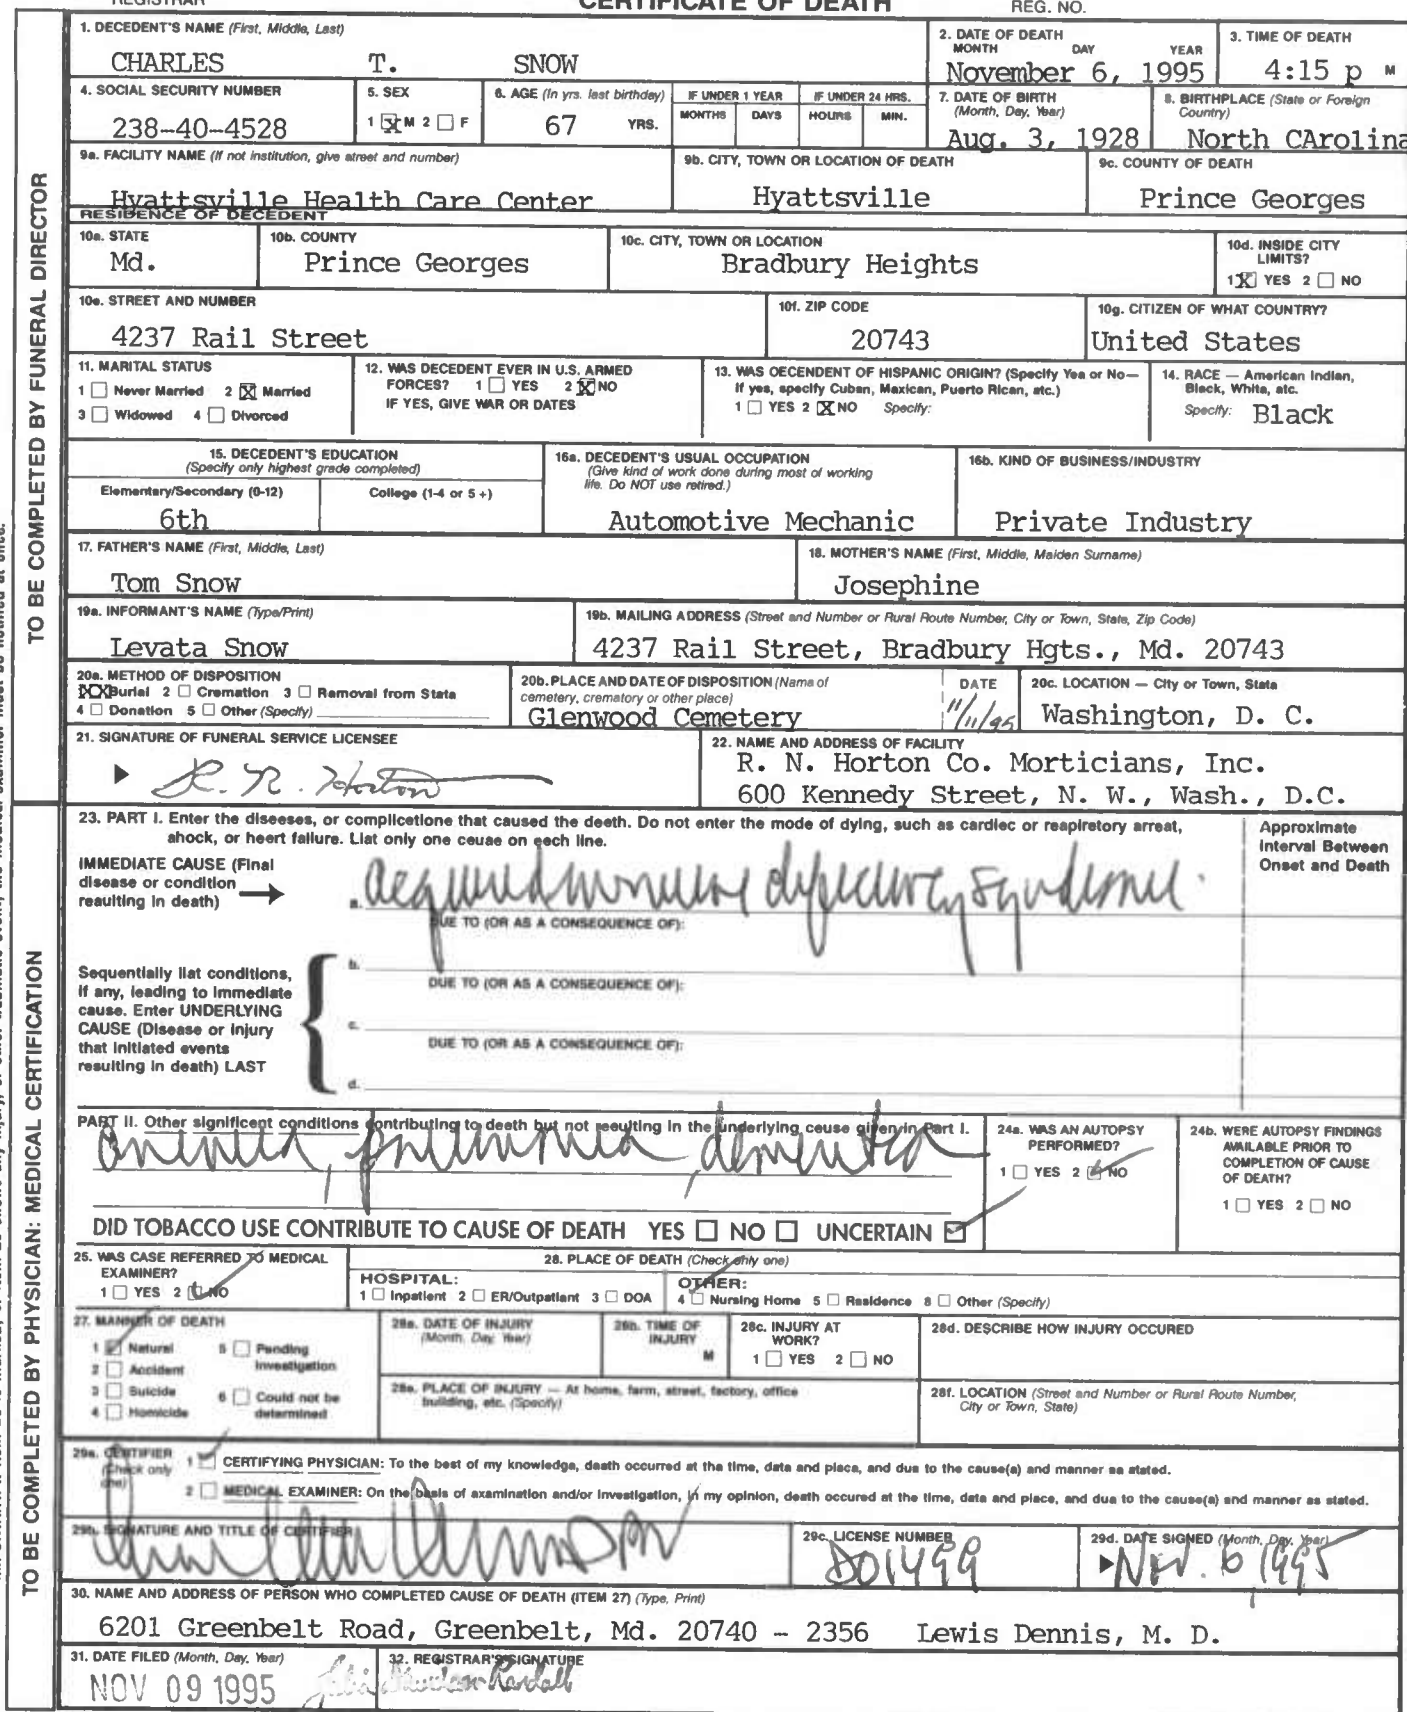 REGISTRAR CERTIFICATE OF DEATH REG. NO.
TO BE COMPLETED BY FUNERAL DIRECTOR
1. DECEDENT'S NAME (First, Middle, Last)
CHARLES T. SNOW
2. DATE OF DEATH
MONTH DAY YEAR
November 6, 1995
3. TIME OF DEATH
4:15 p M
4. SOCIAL SECURITY NUMBER
238-40-4528
5. SEX
1 X M 2 F
6. AGE (In yrs. last birthday)
67 YRS.
IF UNDER 1 YEAR
MONTHS DAYS
IF UNDER 24 HRS.
HOURS MIN.
7. DATE OF BIRTH
(Month, Day, Year)
Aug. 3, 1928
8. BIRTHPLACE (State or Foreign
Country)
North CArolina
9a. FACILITY NAME (If not institution, give street and number)
Hyattsville Health Care Center
9b. CITY, TOWN OR LOCATION OF DEATH
Hyattsville
9c. COUNTY OF DEATH
Prince Georges
RESIDENCE OF DECEDENT
10a. STATE
Md.
10b. COUNTY
Prince Georges
10c. CITY, TOWN OR LOCATION
Bradbury Heights
10d. INSIDE CITY
LIMITS?
1 X YES 2 NO
10e. STREET AND NUMBER
4237 Rail Street
10f. ZIP CODE
20743
10g. CITIZEN OF WHAT COUNTRY?
United States
11. MARITAL STATUS
1 Never Married 2 X Married
3 Widowed 4 Divorced
12. WAS DECEDENT EVER IN U.S. ARMED
FORCES? 1 YES 2 X NO
IF YES, GIVE WAR OR DATES
13. WAS DECENDENT OF HISPANIC ORIGIN? (Specify Yes or No—
If yes, specify Cuban, Mexican, Puerto Rican, etc.)
1 YES 2 X NO Specify:
14. RACE — American Indian,
Black, White, etc.
Specify: Black
15. DECEDENT'S EDUCATION
(Specify only highest grade completed)
Elementary/Secondary (0-12) College (1-4 or 5+)
6th
16a. DECEDENT'S USUAL OCCUPATION
(Give kind of work done during most of working
life. Do NOT use retired.)
Automotive Mechanic
16b. KIND OF BUSINESS/INDUSTRY
Private Industry
17. FATHER'S NAME (First, Middle, Last)
Tom Snow
18. MOTHER'S NAME (First, Middle, Maiden Surname)
Josephine
19a. INFORMANT'S NAME (Type/Print)
Levata Snow
19b. MAILING ADDRESS (Street and Number or Rural Route Number, City or Town, State, Zip Code)
4237 Rail Street, Bradbury Hgts., Md. 20743
20a. METHOD OF DISPOSITION
XX Burial 2 Cremation 3 Removal from State
4 Donation 5 Other (Specify)
20b. PLACE AND DATE OF DISPOSITION (Name of
cemetery, crematory or other place)
Glenwood Cemetery
DATE
11/11/95
20c. LOCATION — City or Town, State
Washington, D. C.
21. SIGNATURE OF FUNERAL SERVICE LICENSEE
R. N. Horton
22. NAME AND ADDRESS OF FACILITY
R. N. Horton Co. Morticians, Inc.
600 Kennedy Street, N. W., Wash., D.C.
TO BE COMPLETED BY PHYSICIAN: MEDICAL CERTIFICATION
23. PART I. Enter the diseases, or complications that caused the death. Do not enter the mode of dying, such as cardiac or respiratory arrest,
shock, or heart failure. List only one cause on each line.
Approximate
Interval Between
Onset and Death
IMMEDIATE CAUSE (Final
disease or condition
resulting in death)
a. acquired immune deficiency syndrome
DUE TO (OR AS A CONSEQUENCE OF):
Sequentially list conditions,
if any, leading to immediate
cause. Enter UNDERLYING
CAUSE (Disease or injury
that initiated events
resulting in death) LAST
b.
DUE TO (OR AS A CONSEQUENCE OF):
c.
DUE TO (OR AS A CONSEQUENCE OF):
d.
PART II. Other significant conditions contributing to death but not resulting in the underlying cause given in Part I.
anemia, pneumonia, dementia
24a. WAS AN AUTOPSY
PERFORMED?
1 YES 2 NO
24b. WERE AUTOPSY FINDINGS
AVAILABLE PRIOR TO
COMPLETION OF CAUSE
OF DEATH?
1 YES 2 NO
DID TOBACCO USE CONTRIBUTE TO CAUSE OF DEATH YES NO UNCERTAIN
25. WAS CASE REFERRED TO MEDICAL
EXAMINER?
1 YES 2 NO
26. PLACE OF DEATH (Check only one)
HOSPITAL:
1 Inpatient 2 ER/Outpatient 3 DOA
OTHER:
4 Nursing Home 5 Residence 6 Other (Specify)
27. MANNER OF DEATH
1 Natural 5 Pending
Investigation
2 Accident
3 Suicide 6 Could not be
4 Homicide determined
28a. DATE OF INJURY
(Month, Day, Year)
28b. TIME OF
INJURY
M
28c. INJURY AT
WORK?
1 YES 2 NO
28d. DESCRIBE HOW INJURY OCCURED
28e. PLACE OF INJURY — At home, farm, street, factory, office
building, etc. (Specify)
28f. LOCATION (Street and Number or Rural Route Number,
City or Town, State)
29a. CERTIFIER
(Check only
one)
1 CERTIFYING PHYSICIAN: To the best of my knowledge, death occurred at the time, date and place, and due to the cause(s) and manner as stated.
2 MEDICAL EXAMINER: On the basis of examination and/or investigation, in my opinion, death occured at the time, date and place, and due to the cause(s) and manner as stated.
29b. SIGNATURE AND TITLE OF CERTIFIER
29c. LICENSE NUMBER
D01499
29d. DATE SIGNED (Month, Day, Year)
Nov. 6, 1995
30. NAME AND ADDRESS OF PERSON WHO COMPLETED CAUSE OF DEATH (ITEM 27) (Type, Print)
6201 Greenbelt Road, Greenbelt, Md. 20740 - 2356 Lewis Dennis, M. D.
31. DATE FILED (Month, Day, Year)
NOV 09 1995
32. REGISTRAR'S SIGNATURE